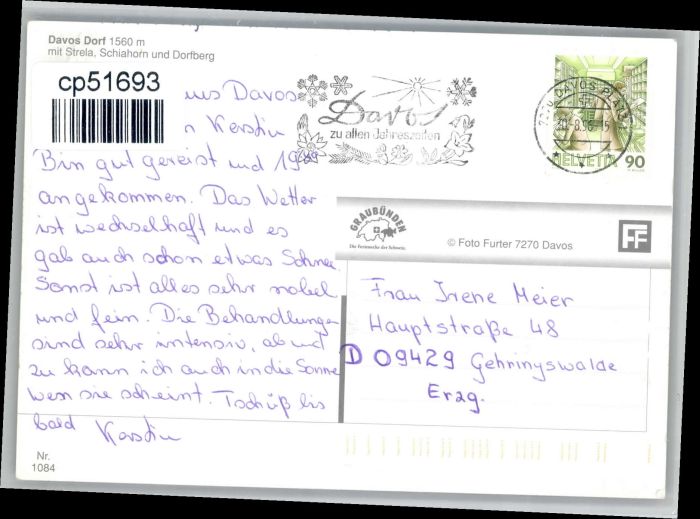 Davos Dorf 1560 m
mit Strela, Schiahorn und Dorfberg
cp51693
aus Davos
Kerstin
Bin gut gereist und
angekommen. Das Wetter
ist wechselhaft und es
gab auch schon etwas Schnee.
Sonst ist alles sehr nobel
und fein. Die Behandlungen
sind sehr intensiv, ab und
zu kann ich auch in die Sonne
wen sie scheint. Tschüß bis
bald Kerstin
Nr.
1084
Davos
zu allen Jahreszeiten
7270 DAVOS PLATZ
HELVETIA 90
GRAUBÜNDEN
Die Ferienecke der Schweiz.
© Foto Furter 7270 Davos
FF
Frau Irene Meier
Hauptstraße 48
D 09429 Gehringswalde
Erzg.